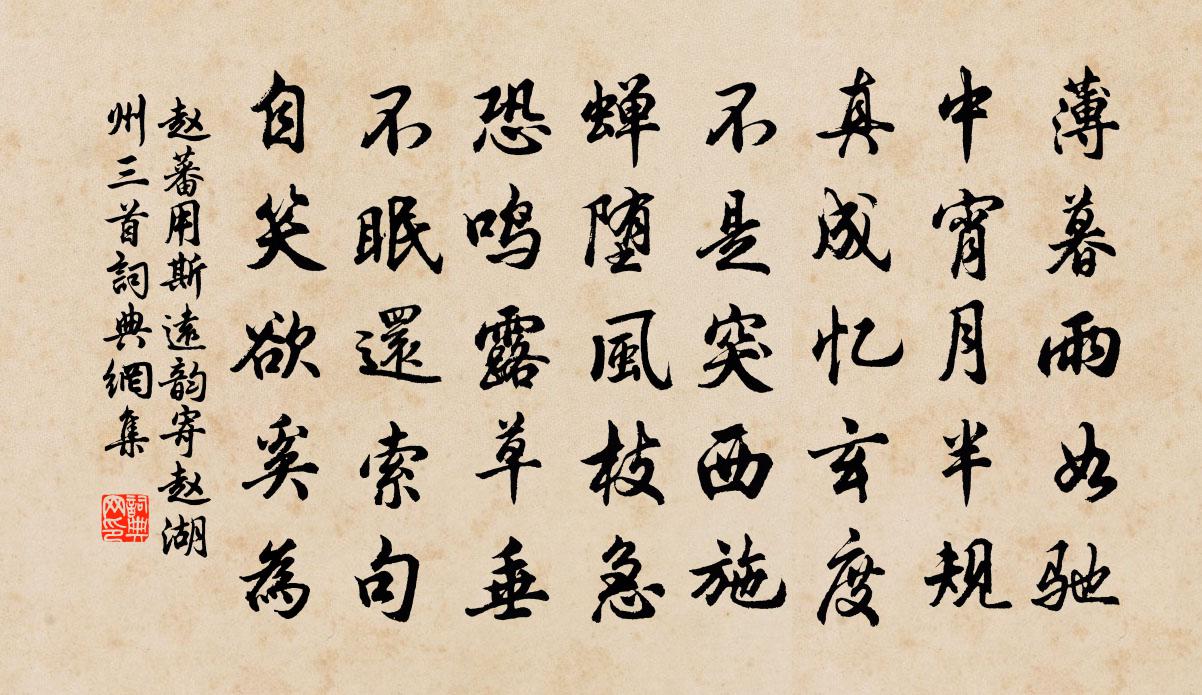 薄暮雨如驰
中宵月半规
真成忆玄度
不是突西施
蝉堕风枝急
恐鸣露草垂
不眠還索句
自笑欲奚為
赵蕃用斯遠韵寄赵湖
州三首詞典網集
詞典网印